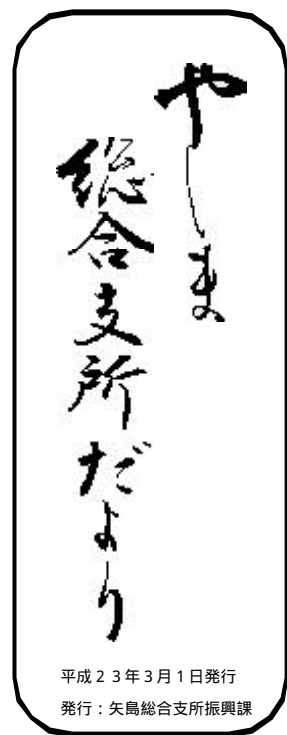 やしま
総合支所だより
平成２３年３月１日発行
発行：矢島総合支所振興課